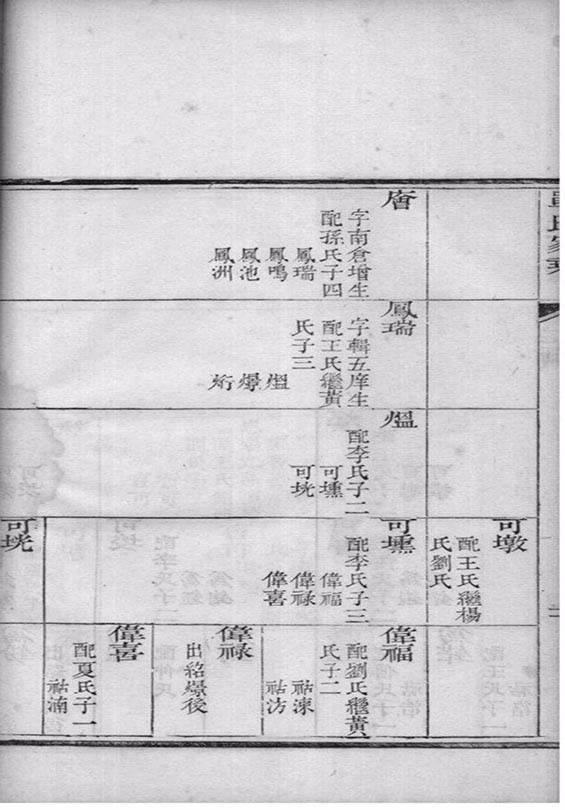 氏家乘
廥
字南倉增生
配孫氏子四
鳳瑞
鳳鳴
鳳池
鳳洲
鳳瑞
字輯五庠生
配王氏繼黃
氏子三
熅
烆
熅
配李氏子二
可壎
可垙
可墩
配王氏繼楊
氏劉氏
可壎
配李氏子三
偉福
偉祿
偉喜
可垙
偉福
配劉氏繼黃
氏子二
祜涷
祜汸
偉祿
出紹後
偉喜
配夏氏子一
祜湳